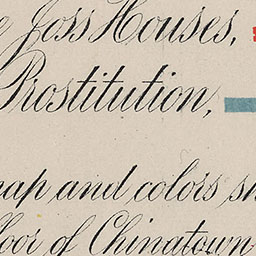 e Joss Houses,
Prostitution,
map and colors sh
loor of Chinatown